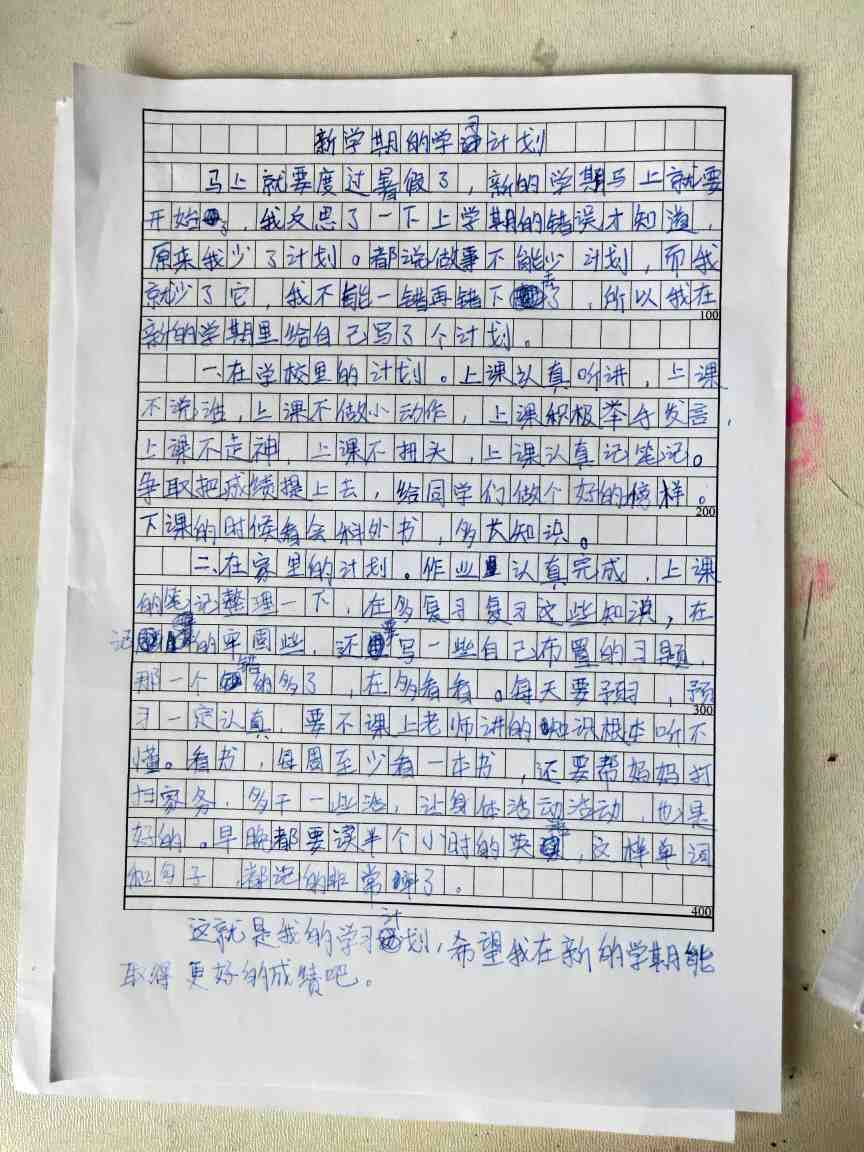 新学期的学习计划
马上就要度过暑假了，新的学期马上就要
开始了，我反思了一下上学期的错误才知道，
原来我少了计划。都说做事不能少计划，而我
就少了它，我不能一错再错下去了，所以我在
100
新的学期里给自己写了个计划。
一、在学校里的计划。上课认真听讲，上课
不说话，上课不做小动作，上课积极举手发言，
上课不走神，上课不扭头，上课认真记笔记。
争取把成绩提上去，给同学们做个好的榜样。
200
下课的时候看会科外书，多长知识。
二、在家里的计划。作业认真完成，上课
的笔记整理一下，在多复习复习这些知识，在
记的牢固些，还要写一些自己布置的习题，
那一个错的多了，在多看看。每天要预习，预
300
习一定认真，要不课上老师讲的知识根本听不
懂。看书，每周至少看一本书，还要帮妈妈打
扫家务，多干一些活，让身体活动活动，也是
好的。早晚都要读半个小时的英，这样单词
和句子，都记的非常牢了。
400
这就是我的学习计划，希望我在新的学期能
取得更好的成绩吧。